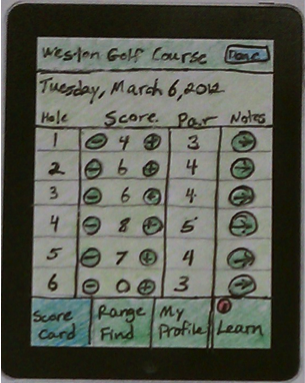 Weston Golf Course Done
Tuesday, March 6, 2012
Hole Score Par Notes
1 - 4 + 3 →
2 - 6 + 4 →
3 - 6 + 4 →
4 - 8 + 5 →
5 - 7 + 4 →
6 - 0 + 3 →
Score Card
Range Find
My Profile
Learn